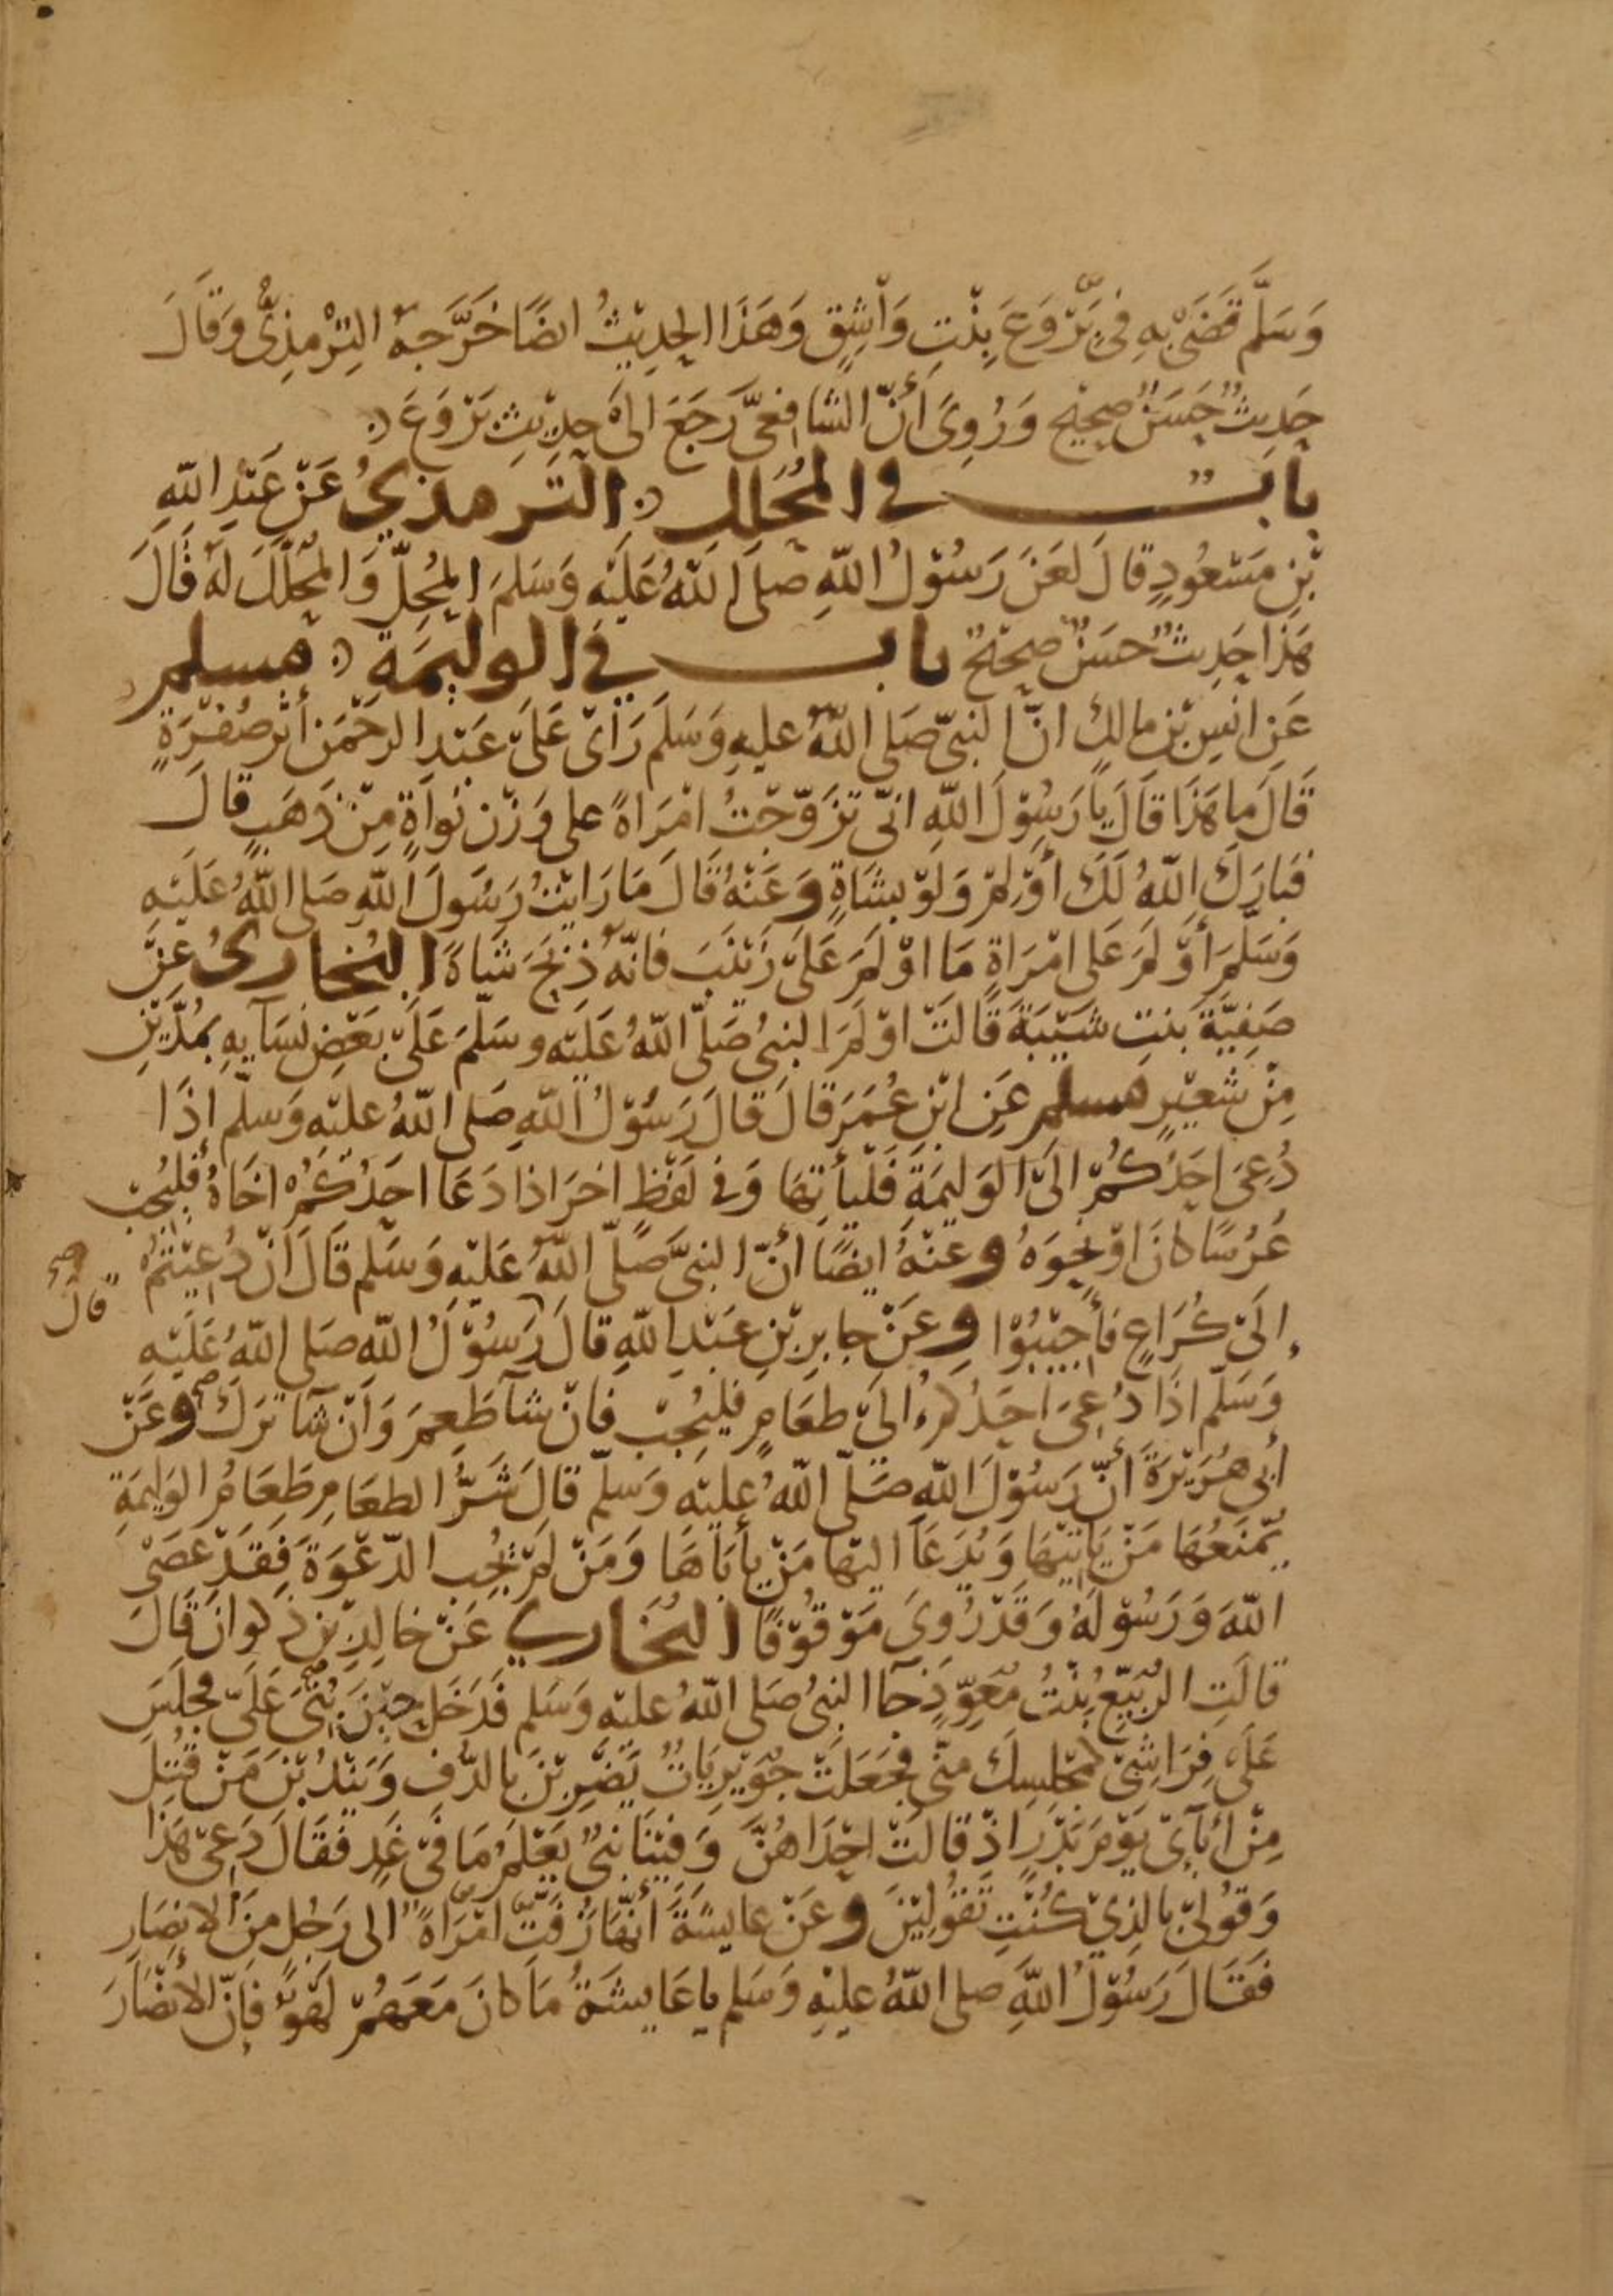 وَسَلَّم قَضَى بِهِ فِي بَرْوَعَ بِنْتِ وَاْشِقٍ وَهَذَا الحَدِيْثُ ايضًا خَرَّجَهُ التِرْمِذِيُّ وَقَالَ
حَدِيثٌ حَسَنٌ صحِيْح وَرُوِيَ أَنّ الشَافِعيَّ رَجَعَ الى حدِيْثِ بَرْوَعَ
بابٌ في المُحَلِل الترمذيُ عَنْ عَبْدِ اللّهِ
بْنِ مَسْعُودٍ قالَ لعَنَ رَسُوْلُ اللّهِ صلى اللّهُ عَلَيْهِ وَسَلمَ المُحِلّ وَالمُحَلَّلَ لَهُ قَالَ
هَذَا حَدِيثٌ حسَنٌ صحِيْحٌ باب في الوليمَة مسلم
عَن انَسِ بْنِ مالِكٍ انّ النبيّ صَلى اللّهُ عليهِ وَسَلمَ رَأىْ عَلَى عَبْدِ الرحْمَن أثر صُفْرَةٍ
قَالَ ما هَذَا قَالَ يا رَسُوْلَ اللّهِ انّي تزَوّجْتُ امْرَاةً على وَزْن نوَاةٍ مِنْ ذَهَبٍ قالَ
فبَارَكَ اللّهُ لَكَ أوْلِمْ وَلوْ بشَاةٍ وَعَنْهُ قَالَ مَا رَايْتُ رَسُولَ اللّهِ صَلى اللّهُ عَلَيْهِ
وَسَلّمَ أوْلَمَ عَلى امْرَاةٍ مَا اوْلَمَ عَلى زَيْنَبَ فانّهُ ذبَحَ شاةً البُخاريُ عَنْ
صَفِيّةَ بنتِ شيْبَةَ قَالَتْ اوْلَمَ النبيُ صَلّى اللّهُ عَلَيْهِ وسَلّمَ عَلَى بَعْضِ نسَآيهِ بمُدّيْنِ
مِنْ شعيْرٍ مسلم عَن ابْنِ عُمَرَ قالَ قالَ رَسُوْلُ اللّهِ صَلى اللّهُ عليْه وَسَلّم إذَا
دُعِىَ احَدُكُمْ الىَ الوَلِيمَةِ فَلْيأتِهَا وَفي لفْظٍ اخرَ اذا دَعَا احَدُكُمْ اخَاهُ فليُجِبْ
عُرْسًا كانَ اوْ نحوَهُ وعنْهُ ايضًا أنّ النبيَّ صَلّى اللّهُ عَلَيْهِ وَسَلم قَالَ انْ دُعِيْتُمْ
إلىَ كُرَاعٍ فَأجِيْبُوْا وعَنْ جابرِ بْنِ عَبْدِ اللّهِ قالَ رَسُوْلُ اللّه صَلى اللّهُ عَلَيْهِ
قال صح
وَسَلّم اذَا دُعِىَ احَدُكمْ الىَ طعَامٍ فليُجِبْ فَانْ شآ طَعِمَ وَانْ شآ تَرَكَ وعَنْ
أبي هُرَيْرَةَ أنّ رَسُوْلَ اللّهِ صَلّى اللّهُ عليْهِ وَسَلّم قالَ شَرُّ الطعَامِ طَعَامُ الوَلِيمَةِ
يُمْنَعُهَا مَنْ يَاتِيْهَا وَيُدْعَا اليْهَا مَنْ يأبَاهَا وَمَنْ لمْ يُجُبِ الدّعْوَةَ فَقَدْ عَصَى
اللّهَ وَرَسُوْلَهُ وَقَدْ رُوِىَ مَوْقُوْفًا البُخَاري عَنْ خالِدِ بْنِ ذكوانَ قَالَ
قالَتِ الرُّبَيِّعُ بِنْتُ مُعَوِّذٍ جآ النبيُ صَلى اللّهُ عليْهِ وَسَلم فَدَخَلَ حِيْنَ بُنيَ عَلَيّ فجلَسَ
عَلَى فِرَاشِيْ كمَجْلِسِكَ مِنّي فجَعَلَتْ جُوَيْرِيَاتٌ يَضْرِبْنَ بالدُفِ وَيَنْدُبْنَ مَنْ قُتِلَ
مِنْ أبَآئ يَوْمَ بَدْرٍ اذْ قالَتْ احْدَاهُنَّ وَفِيْنَا نبيٌ يَعْلمُ مَا فيْ غَدٍ فَقَالَ دَعِيْ هَذَا
وَقوُلىْ بالذِيْ كُنْتِ تَقوُلِيْنَ وعَنْ عايشَةَ أنّهَا زَفَّتْ امْرَاةً الى رَجُلٍ مِنَ الانصَارِ
فَقَالَ رَسُوْلُ اللّهِ صلى اللّهُ عليْهِ وَسَلم يا عَايشَةُ مَا كانَ مَعَهُمْ لَهْوٌ فإنّ الأنْصَارَ